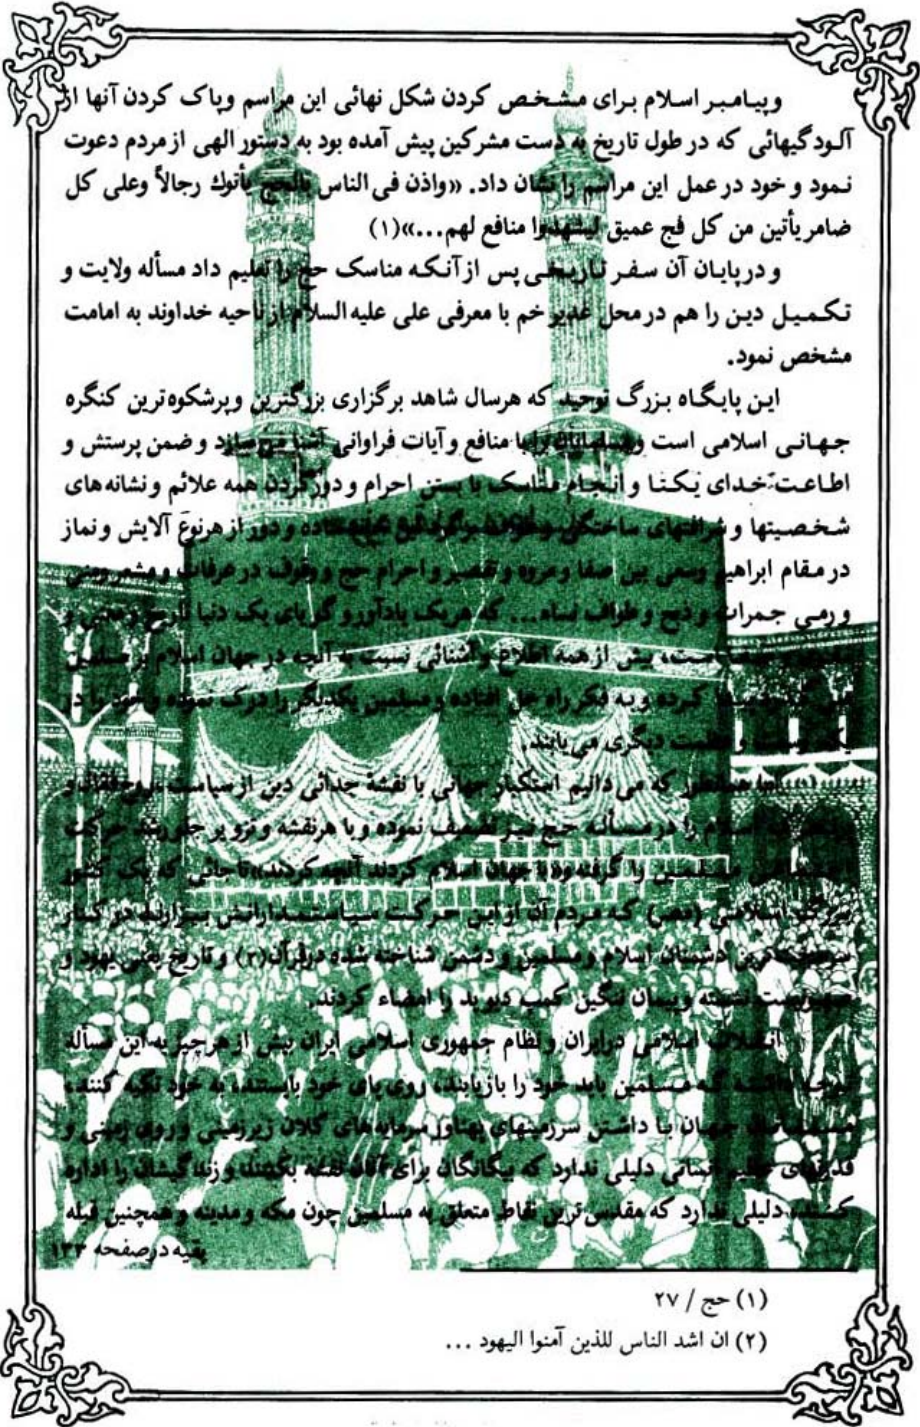 وپیامبر اسلام برای مشخص کردن شکل نهائی این مراسم وپاک کردن آنها از
آلودگیهائی که در طول تاریخ به دست مشرکین پیش آمده بود به دستور الهی از مردم دعوت
نمود و خود در عمل این مراسم را نشان داد. «واذن فی الناس بالحج یأتوك رجالاً وعلی کل
ضامر یأتین من کل فج عمیق لیشهدوا منافع لهم...»(۱)
و در پایان آن سفر تاریخی پس از آنکه مناسک حج را تعلیم داد مسأله ولایت و
تکمیل دین را هم در محل غدیر خم با معرفی علی علیه السلام از ناحیه خداوند به امامت
مشخص نمود.
این پایگاه بزرگ توحید که هرسال شاهد برگزاری بزرگترین وپرشکوه‌ترین کنگره
جهانی اسلامی است و مسلمانان را با منافع و آیات فراوانی آشنا می‌سازد و ضمن پرستش و
اطاعت خدای یکتا و انجام مناسک با بستن احرام و دورکردن همه علائم و نشانه‌های
شخصیتها و شرافتهای ساختگی و دور از هرنوع آلایش و نماز
در مقام ابراهیم وسعی بین صفا و مروه و تقصیر و احرام حج و وقوف در عرفات و مشعر ومنی
و رمی جمرات و ذبح و طواف نساء... که هریک یادآور و گویای یک دنیا تاریخ و
است، بیش از همه اطلاع و آشنائی نسبت به آنچه در جهان اسلام بر مسلمین
کرده و به فکر راه حل افتاده و مسلمین یکدیگر را درک نموده و خود را در
یک و عظمت دیگری می‌یابند.
اما همانطور که می‌دانیم استکبار جهانی با نقشۀ جدائی دین از سیاست،
اسلام را در مسأله حج نیز تضعیف نموده و با هرنقشه و تزویر جلو رشد حرکت
مسلمین را گرفته و «با جهان اسلام کردند آنچه کردند» تا جائی که یک کشور
اسلامی (مصر) که مردم آن از این حرکت سیاستمدارانش بیزارند در کنار
دشمنان اسلام و مسلمین و دشمن شناخته شده در قرآن(۲) و تاریخ یعنی یهود و
صهیونیست نشسته و پیمان ننگین کمپ دیوید را امضاء کردند.
انقلاب اسلامی در ایران و نظام جمهوری اسلامی ایران بیش از هرچیز به این مسأله
توجه داشته که مسلمین باید خود را بازیابند، روی پای خود بایستند، به خود تکیه کنند،
مسلمانان جهان با داشتن سرزمینهای پهناور سرمایه‌های کلان زیرزمینی و روی زمینی و
قدرتهای عظیم انسانی دلیلی ندارد که بیگانگان برای آنان نقشه بکشند و زندگیشان را اداره
کنند، دلیلی ندارد که مقدس‌ترین نقاط متعلق به مسلمین چون مکه و مدینه و همچنین قبله
بقیه در صفحه ۱۳۳
(۱) حج / ۲۷
(۲) ان اشد الناس للذین آمنوا الیهود ...